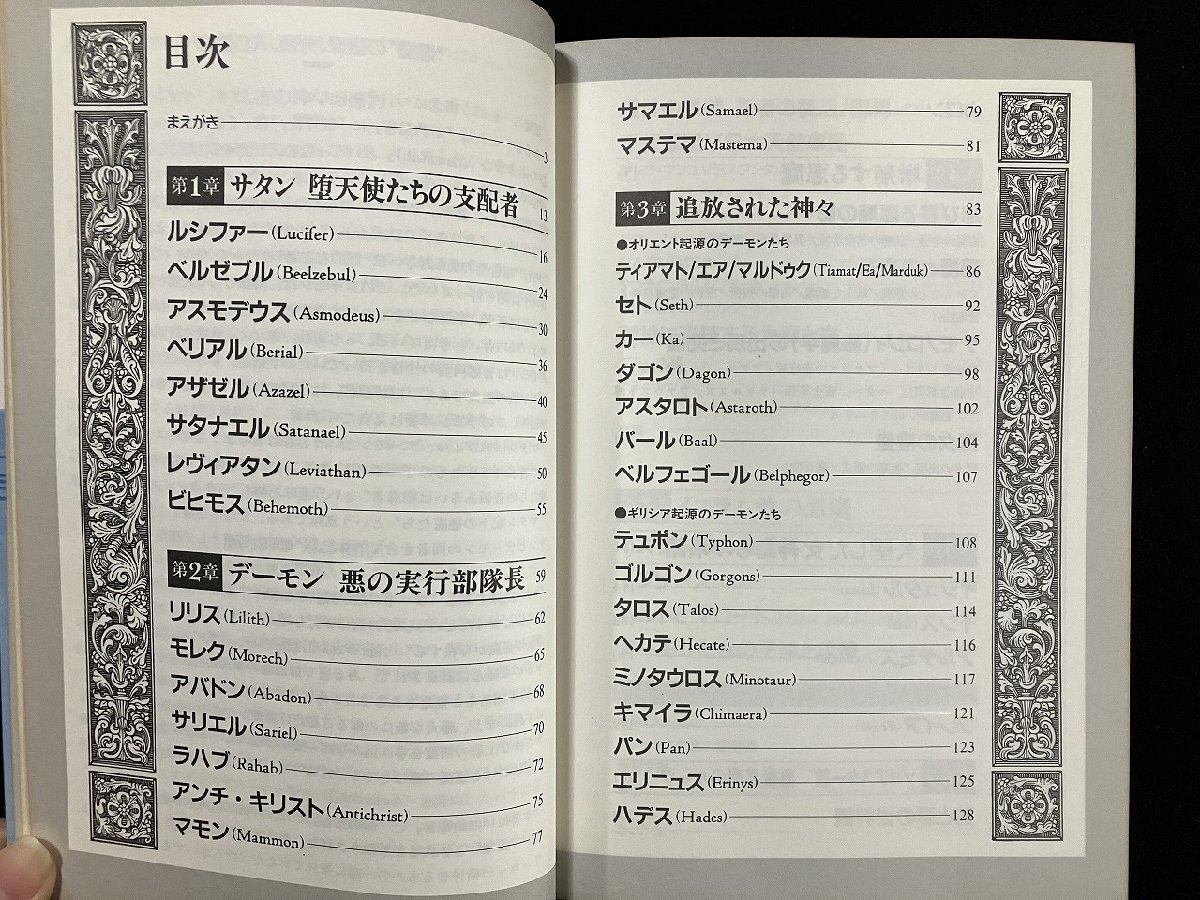 目次
まえがき 3
第1章 サタン 堕天使たちの支配者 13
ルシファー(Lucifer) 16
ベルゼブル(Beelzebul) 24
アスモデウス(Asmodeus) 30
ベリアル(Berial) 36
アザゼル(Azazel) 40
サタナエル(Satanael) 45
レヴィアタン(Leviathan) 50
ビヒモス(Behemoth) 55
第2章 デーモン 悪の実行部隊長 59
リリス(Lilith) 62
モレク(Morech) 65
アバドン(Abadon) 68
サリエル(Sariel) 70
ラハブ(Rahab) 72
アンチ・キリスト(Antichrist) 75
マモン(Mammon) 77
サマエル(Samael) 79
マステマ(Mastema) 81
第3章 追放された神々 83
●オリエント起源のデーモンたち
ティアマト/エア/マルドゥク(Tiamat/Ea/Marduk) 86
セト(Seth) 92
カー(Ka) 95
ダゴン(Dagon) 98
アスタロト(Astaroth) 102
バール(Baal) 104
ベルフェゴール(Belphegor) 107
●ギリシア起源のデーモンたち
テュポン(Typhon) 108
ゴルゴン(Gorgons) 111
タロス(Talos) 114
ヘカテ(Hecate) 116
ミノタウロス(Minotaur) 117
キマイラ(Chimaera) 121
パン(Pan) 123
エリニュス(Erinys) 125
ハデス(Hades) 128